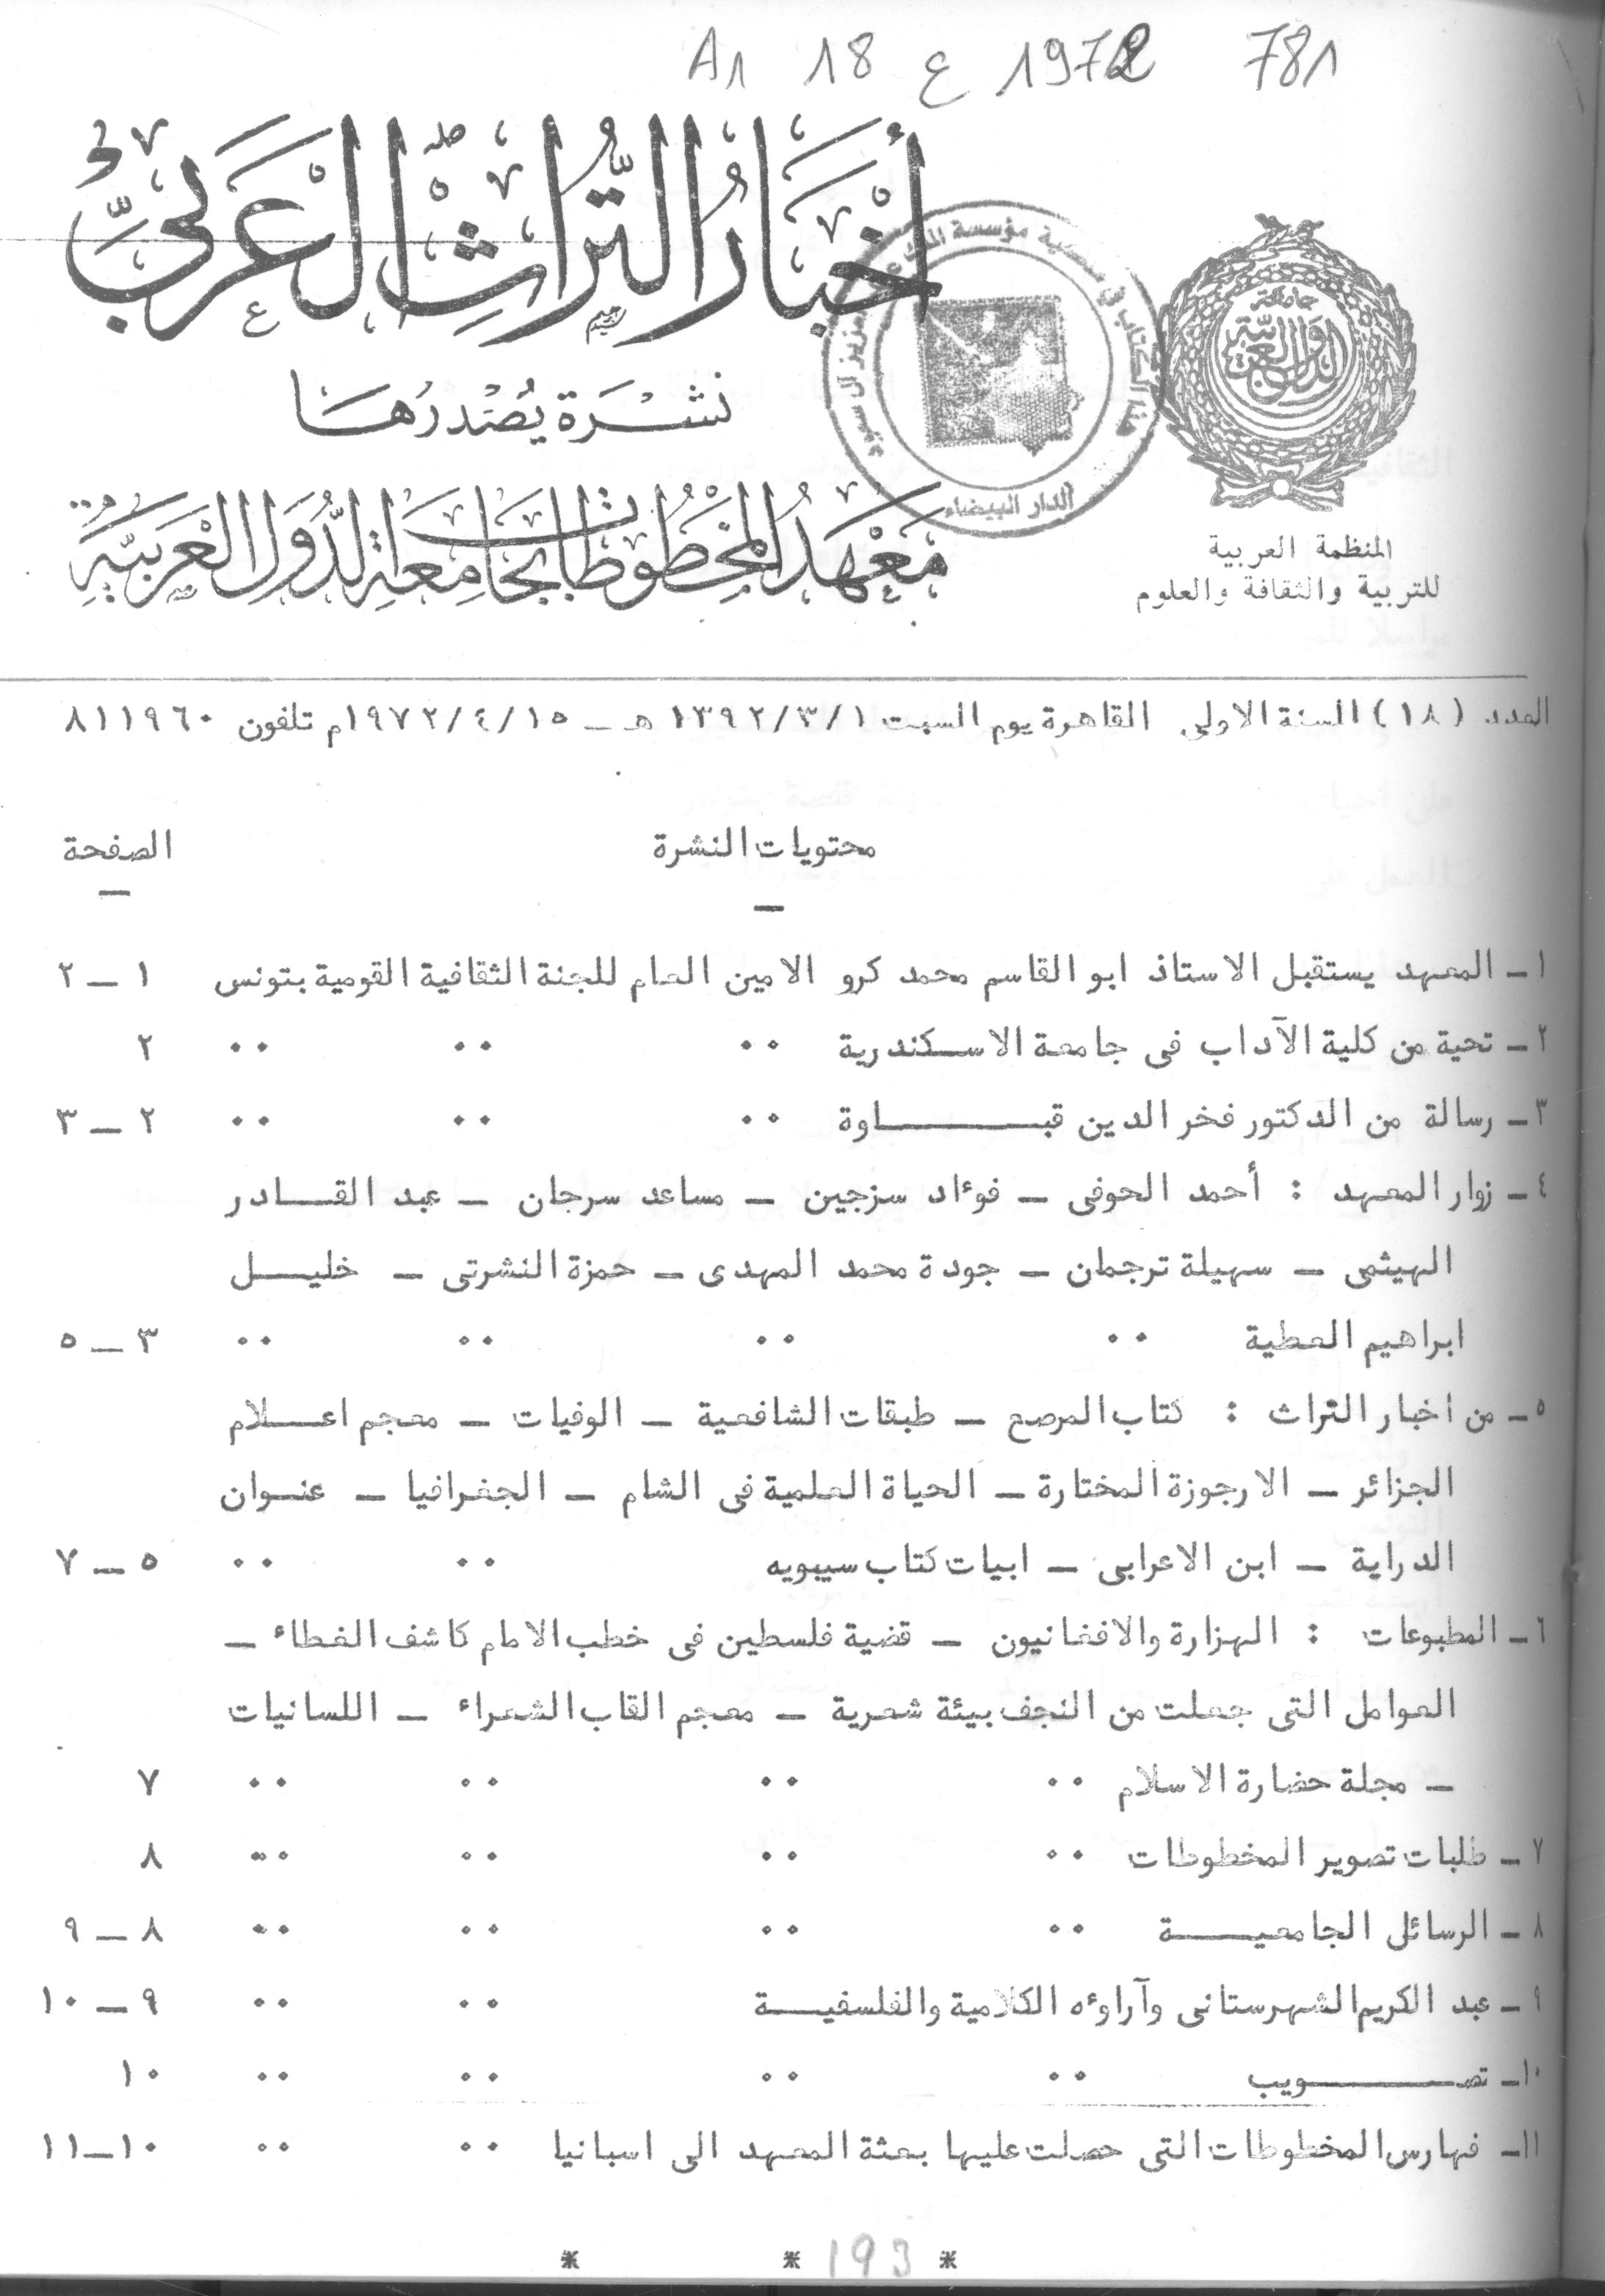 A1 18 ع 1972 781
أَخْبَارُ التُّرَاثِ الْعَرَبِيِّ
نشرة يصدرها
معهد المخطوطات بجامعة الدول العربية
جامعة
الدول العربية
المنظمة العربية
للتربية والثقافة والعلوم
الدار البيضاء
العدد (١٨) السنة الاولى القاهرة يوم السبت ١٣٩٢/٣/١ هـ ــ ١٩٧٢/٤/١٥م تلفون ٨١١٩٦٠
محتويات النشرة الصفحة
١ــ المعهد يستقبل الاستاذ ابو القاسم محمد كرو الامين العام للجنة الثقافية القومية بتونس ١ ــ ٢
٢ــ تحية من كلية الآداب فى جامعة الاسـكندرية ٠٠ ٠٠ ٠٠ ٢
٣ــ رسالة من الدكتور فخر الدين قبـــــاوة ٠٠ ٠٠ ٠٠ ٢ ــ ٣
٤ــ زوار المعهد : أحمد الحوفى ــ فوءاد سزجين ــ مساعد سرجان ــ عبد القـــادر
الهيثمى ــ سهيلة ترجمان ــ جودة محمد المهدى ــ حمزة النشرتى ــ خليــل
ابراهيم العطية ٠٠ ٠٠ ٠٠ ٠٠ ٣ ــ ٥
٥ــ من اخبار التراث : كتاب المرصع ــ طبقات الشافعية ــ الوفيات ــ معجم اعــلام
الجزائر ــ الارجوزة المختارة ــ الحياة العلمية فى الشام ــ الجغرافيا ــ عنـوان
الدراية ــ ابن الاعرابى ــ ابيات كتاب سيبويه ٠٠ ٠٠ ٥ ــ ٧
٦ــ المطبوعات : الهزارة والافغانيون ــ قضية فلسطين فى خطب الامام كاشف الغطاء ــ
العوامل التى جعلت من النجف بيئة شعرية ــ معجم القاب الشعراء ــ اللسانيات
ــ مجلة حضارة الاسلام ٠٠ ٠٠ ٠٠ ٠٠ ٧
٧ــ طلبات تصوير المخطوطات ٠٠ ٠٠ ٠٠ ٠٠ ٨
٨ــ الرسائل الجامعيــــة ٠٠ ٠٠ ٠٠ ٠٠ ٨ ــ ٩
٩ــ عبد الكريم الشهرستانى وآراوءه الكلامية والفلسفيــة ٠٠ ٠٠ ٩ ــ ١٠
١٠ــ تصــــــويب ٠٠ ٠٠ ٠٠ ٠٠ ١٠
١١ــ فهارس المخطوطات التى حصلت عليها بعثة المعهد الى اسبانيا ٠٠ ٠٠ ١٠ــ١١
* 193 * *